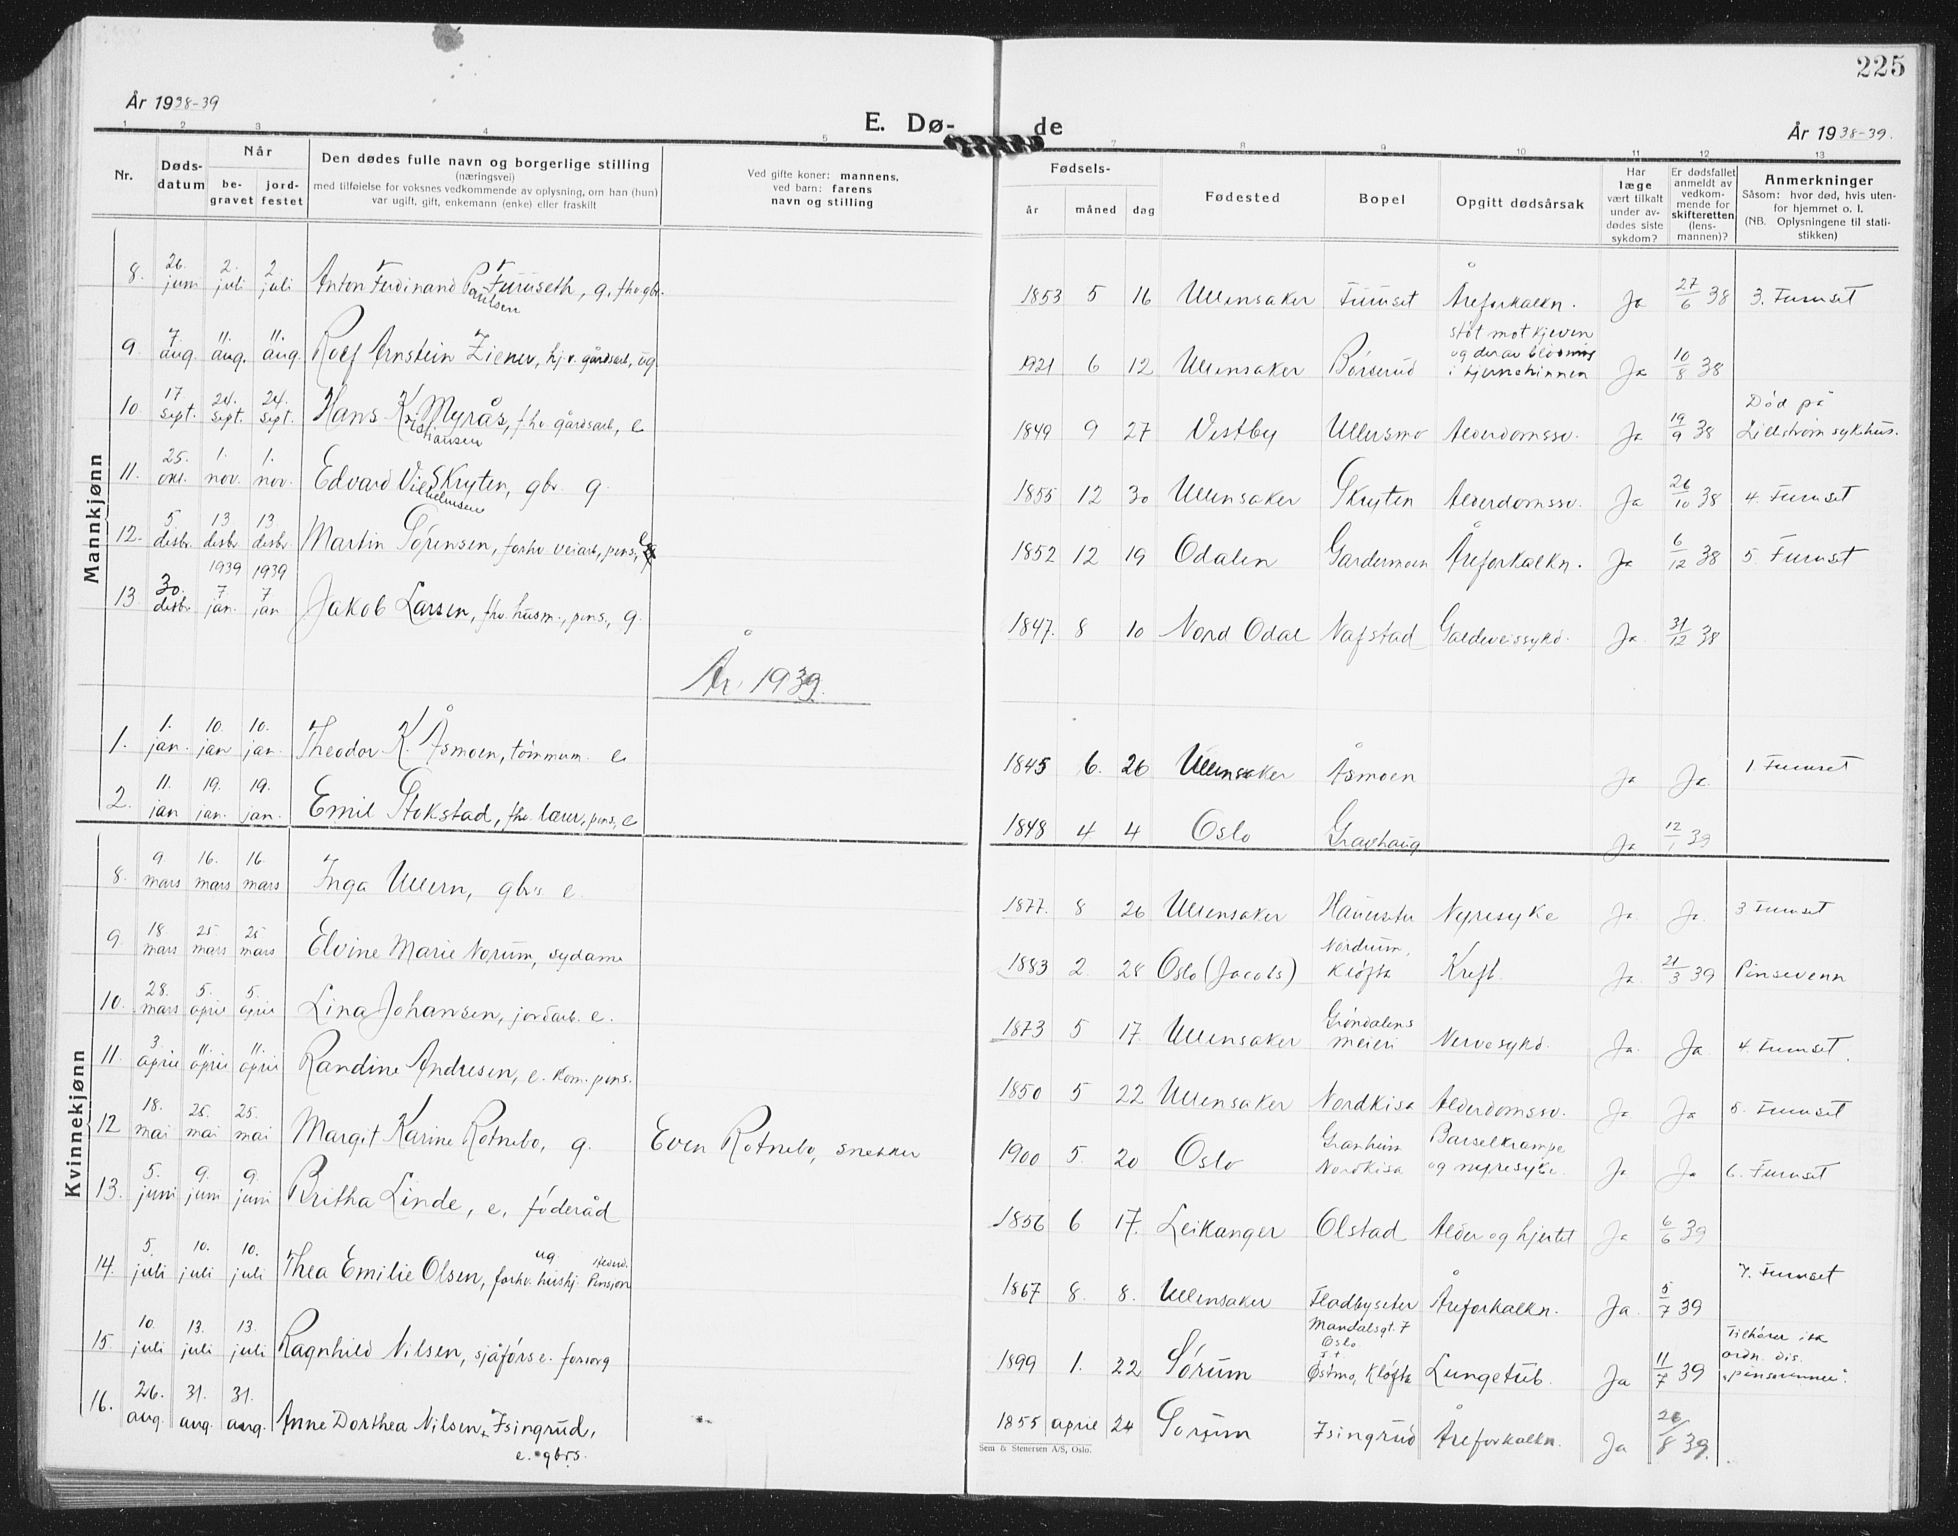 225
År 1938-39
E. Dø- de
År 1938-39.
1 2 3 4 5 7 8 9 10 11 12 13
Nr.
Døds-
datum
Når
be-
gravet
jord-
festet
Den dødes fulle navn og borgerlige stilling
(næringsvei)
med tilføielse for voksnes vedkommende av oplysning, om han (hun)
var ugift, gift, enkemann (enke) eller fraskilt
Ved gifte koner: mannens,
ved barn: farens
navn og stilling
Fødsels-
år måned dag
Fødested
Bopel
Opgitt dødsårsak
Har
læge
vært tilkalt
under av-
dødes siste
sykdom?
Er dødsfallet
anmeldt av
vedkom-
mende for
skifteretten
(lens-
mannen)?
Anmerkninger
Såsom: hvor død, hvis uten-
for hjemmet o. l.
(NB. Oplysningene til stati-
stikken)
Mannkjønn
8. 26. juni 2. juli 2 juli Anton Ferdinand Paulsen Furuseth, g. fhv. gbr. 1853 5 16 Ullensaker Furuset Åreforkalkn. Ja 27/6 38 3. Furuset
9 7 aug. 11. aug. 11. aug. Rolf Arnstein Ziener, hj.v. gårdsarb, ug 1921 6 12 Ullensaker Børserud støt mot kjeven og derav blødning i hjernehinnen Ja 10/8 38
10 17 sept. 24. sept. 24. sept. Hans Kristiansen Myrås, fhv. gårdsarb, e 1849 9 27 Vestby Ullersmo Alderdomssv. Ja 19/9 38 Død på Lillestrøm sykehus.
11. 25. okt. 1. nov. 1. nov. Edvard Vilhelmsen Skryten, gbr. g. 1855 12 30 Ullensaker Skryten Alderdomssv. Ja 26/10 38 4. Furuset
12. 5 desbr. 13 desbr. 13 desbr. Martin Sørensen, forhv. veiarb, pens, 1852 12 19 Odalen Gardermoen Åreforkalkn. Ja 6/12 38 5. Furuset
13 30. desbr. 1939 7 jan. 1939 7 jan Jakob Larsen, fhv. husm., pens, g. 1847. 8 10 Nord Odal Nafstad Galdeveissykd. Ja 31/12 38
År 1939.
1. 1. jan. 10. jan 10. jan. Theodor K. Åsmoen, tømmerm. e 1845 6. 26 Ullensaker Åsmoen Ja Ja. 1. Furuset
2. 11. jan 19. jan. 19. jan. Emil Stokstad, fhv. lærer, pens, e 1848 4 4 Oslo Gravhaug Ja 12/1 39
Kvinnekjønn
8. 9. mars 16. mars 16. mars Inga Ullern, gbr's e. 1877. 8 26 Ullensaker Nyresyke Ja. Ja. 3 Furuset
9. 18. mars 25 mars 25 mars Elvine Marie Norum, sydame 1883 2. 28 Oslo (Jacobs) Nordrum, Kløfta Kreft. Ja. 21/3 39 Pinsevenn
10. 28. mars 5. april 5. april Lina Johansen, jordarb. e. 1873 5 17. Ullensaker Grøndalens meieri Nervesykd. Ja. Ja. 4. Furuset.
11. 3. april 11. april 11. april Randine Andresen, e. kom. pens. 1850 5 22 Ullensaker Nordkisa Alderdomssv. Ja Ja 5. Furuset
12 18. mai 25. mai 25. mai Margit Karine Rotnebo, g. Even Rotnebo, snekker 1900 5. 20 Oslo Granheim Nordkisa Barselkrampe og nyresyke. Ja Ja 6. Furuset
13. 5. juni 9. juni 9. juni Britha Linde, e, føderåd 1856 6 17. Leikanger Olstad Alder og hjertet Ja 6/6 39
14. 5. juli 10. juli 10. juli Thea Emilie Olsen, forhv. hushj. ug. Pensjon 1867 8. 8. Ullensaker Fladbyseter Åreforkalkn. Ja. 5/7 39 7. Furuset
15. 10. juli 13. juli 13. juli Ragnhild Nilsen, sjåførs e. forsorg 1899 1. 22 Sørum Mandalsgt. 7 Oslo Østmo, Kløfta Lungetub. Ja 11/7 39 Tilhører ikke ordn. dis. "pinsevenner".
16. 26. aug. 31. aug. 31. aug. Anne Dorthea Nilsen, Isingrud, e. gbrs. 1855 april 24 Sørum Isingrud Åreforkalkn. Ja 26/8 39.
Sem & Stenersen A/S, Oslo.